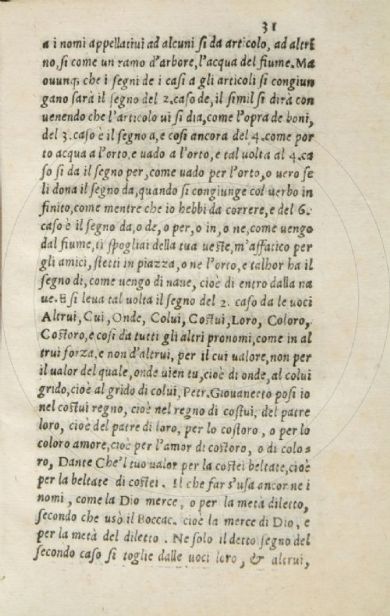 31
a i nomi appellatiui ad alcuni si da articolo, ad altri
no, si come un ramo d'arbore, l'acqua del fiume. Ma
ouunq; che i segni de i casi a gli articoli si congiun
gano sarà il segno del 2. caso de, il simil si dirà con
uenendo che l'articolo ui si dia, come l'opra de boni,
del 3. caso è il segno a, e così ancora del 4. come por
to acqua a l'orto, e uado a l'orto, e tal uolta al 4. ca
so si da il segno per, come uado per l'orto, o uero se
li dona il segno da, quando si congiunge col uerbo in
finito, come mentre che io hebbi da correre, e del 6.
caso è il segno da, o de, o per, o in, o ne, come uengo
dal fiume, ti spogliai della tua ueste, m'affatico per
gli amici, stetti in piazza, o ne l'orto, e talhor ha il
segno di, come uengo di naue, cioè di entro dalla na
ue. E si leua tal uolta il segno del 2. caso da le uoci
Altrui, Cui, Onde, Colui, Costui, Loro, Coloro,
Costoro, e così da tutti gli altri pronomi, come in al
trui forza, e non d'altrui, per il cui ualore, non per
il ualor del quale, onde uien tu, cioè di onde, al colui
grido, cioè al grido di colui, Petr. Giouanetto posi io
nel costui regno, cioè nel regno di costui, del patre
loro, cioè del patre di loro, per lo costoro, o per lo
coloro amore, cioè per l'amor di costoro, o di colo
ro, Dante Che'l tuo ualor per la costei beltate, cioè
per la beltate di costei. Il che far s'usa ancor ne i
nomi, come la Dio merce, o per la metà diletto,
secondo che usò il Boccac. cioè la merce di Dio, e
per la metà del diletto. Ne solo il detto segno del
secondo caso si toglie dalle uoci loro, & altrui,